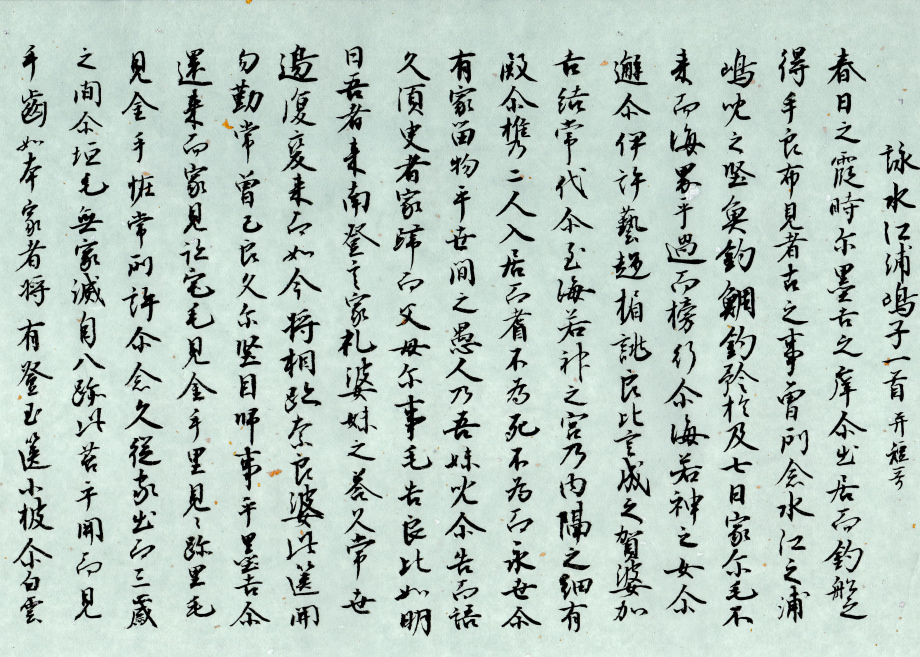 詠水江浦嶋子一首 并短哥
春日之霞時尓墨吉之岸尓出居而釣船之
得手良布見者古之事曽所念水江之浦
嶋児之堅魚釣鯛釣矜於及七日家尓毛不
来而海界乎過而榜行尓海若神之女尓
邂尓伊許藝趍相誂良比言成之賀婆加
吉結常代尓至海若神之宮乃内隔之細有
殿尓携二人入居而耆不為死不為而永世尓
有家留物乎世間之愚人乃吾妹児尓告而語
久須臾者家歸而父母尓事毛告良比如明
日吾者来南登言家礼婆妹之答久常世
邊復變来而如今将相跡奈良婆此篋開
勿勤常曽己良久尓堅目師事乎墨吉尓
還来而家見跡宅毛見金手里見々跡里毛
見金手恠常所許尓念久従家出而三歳
之間尓垣毛無家滅目八跡此筥乎開而見
手歯如本家者将有登玉篋小披尓白雲